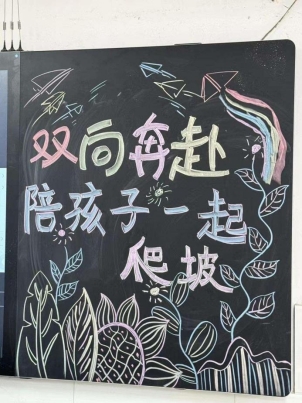 双向奔赴
陪孩子一起
爬坡